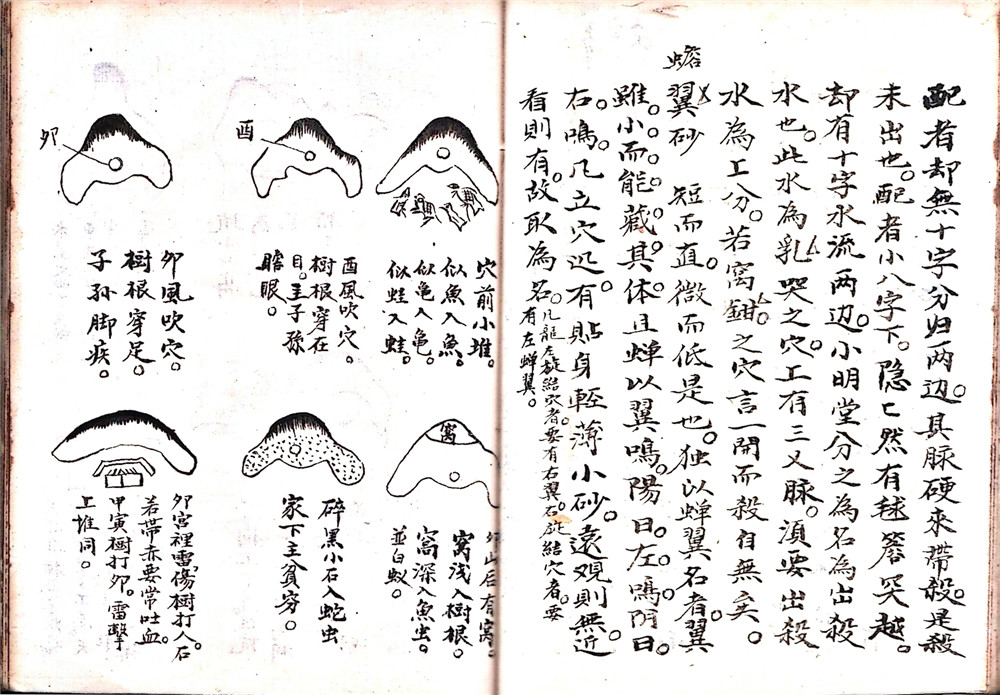 配者却無十字分归两边。其脉硬来帶殺。是殺
未出也。配者小八字下。隐匕然有毬簷突越。
却有十字水流两边。小明堂分之為名為出殺
水也。此水為乳哭之穴。上有三义脉。須要出殺
水為上分。若窩鉗之穴言一開而殺自無矣。
蟾
翼砂 短而直。微而低是也。独以蝉翼名者。翼
雖小而能藏其体。且蝉以翼鳴。陽曰左。鳴阴曰
右。鳴。凡立穴迟。有貼身輕薄小砂。遠观則無。近
看則有。故取為名。凡龍左旋結穴者。要有右翼。右旋結穴者。要
有左蝉翼。
穴前小堆。
似魚入魚。
似亀入亀。
似蛙入蛙。
酉
酉風吹穴。
樹根穿在
目。主子孫
瞎眼。
卯
卯風吹穴。
樹根穿足。
子孫脚疾。
窩
后有窩。
窩浅入樹根。
窩深入魚虫。
並白蚁。
碎黑小石入蛇虫
家下主貧穷。
卯宫裡雷傷樹打人。石
若帶赤要常吐血。
甲寅樹打卯。雷擊
上堆同。